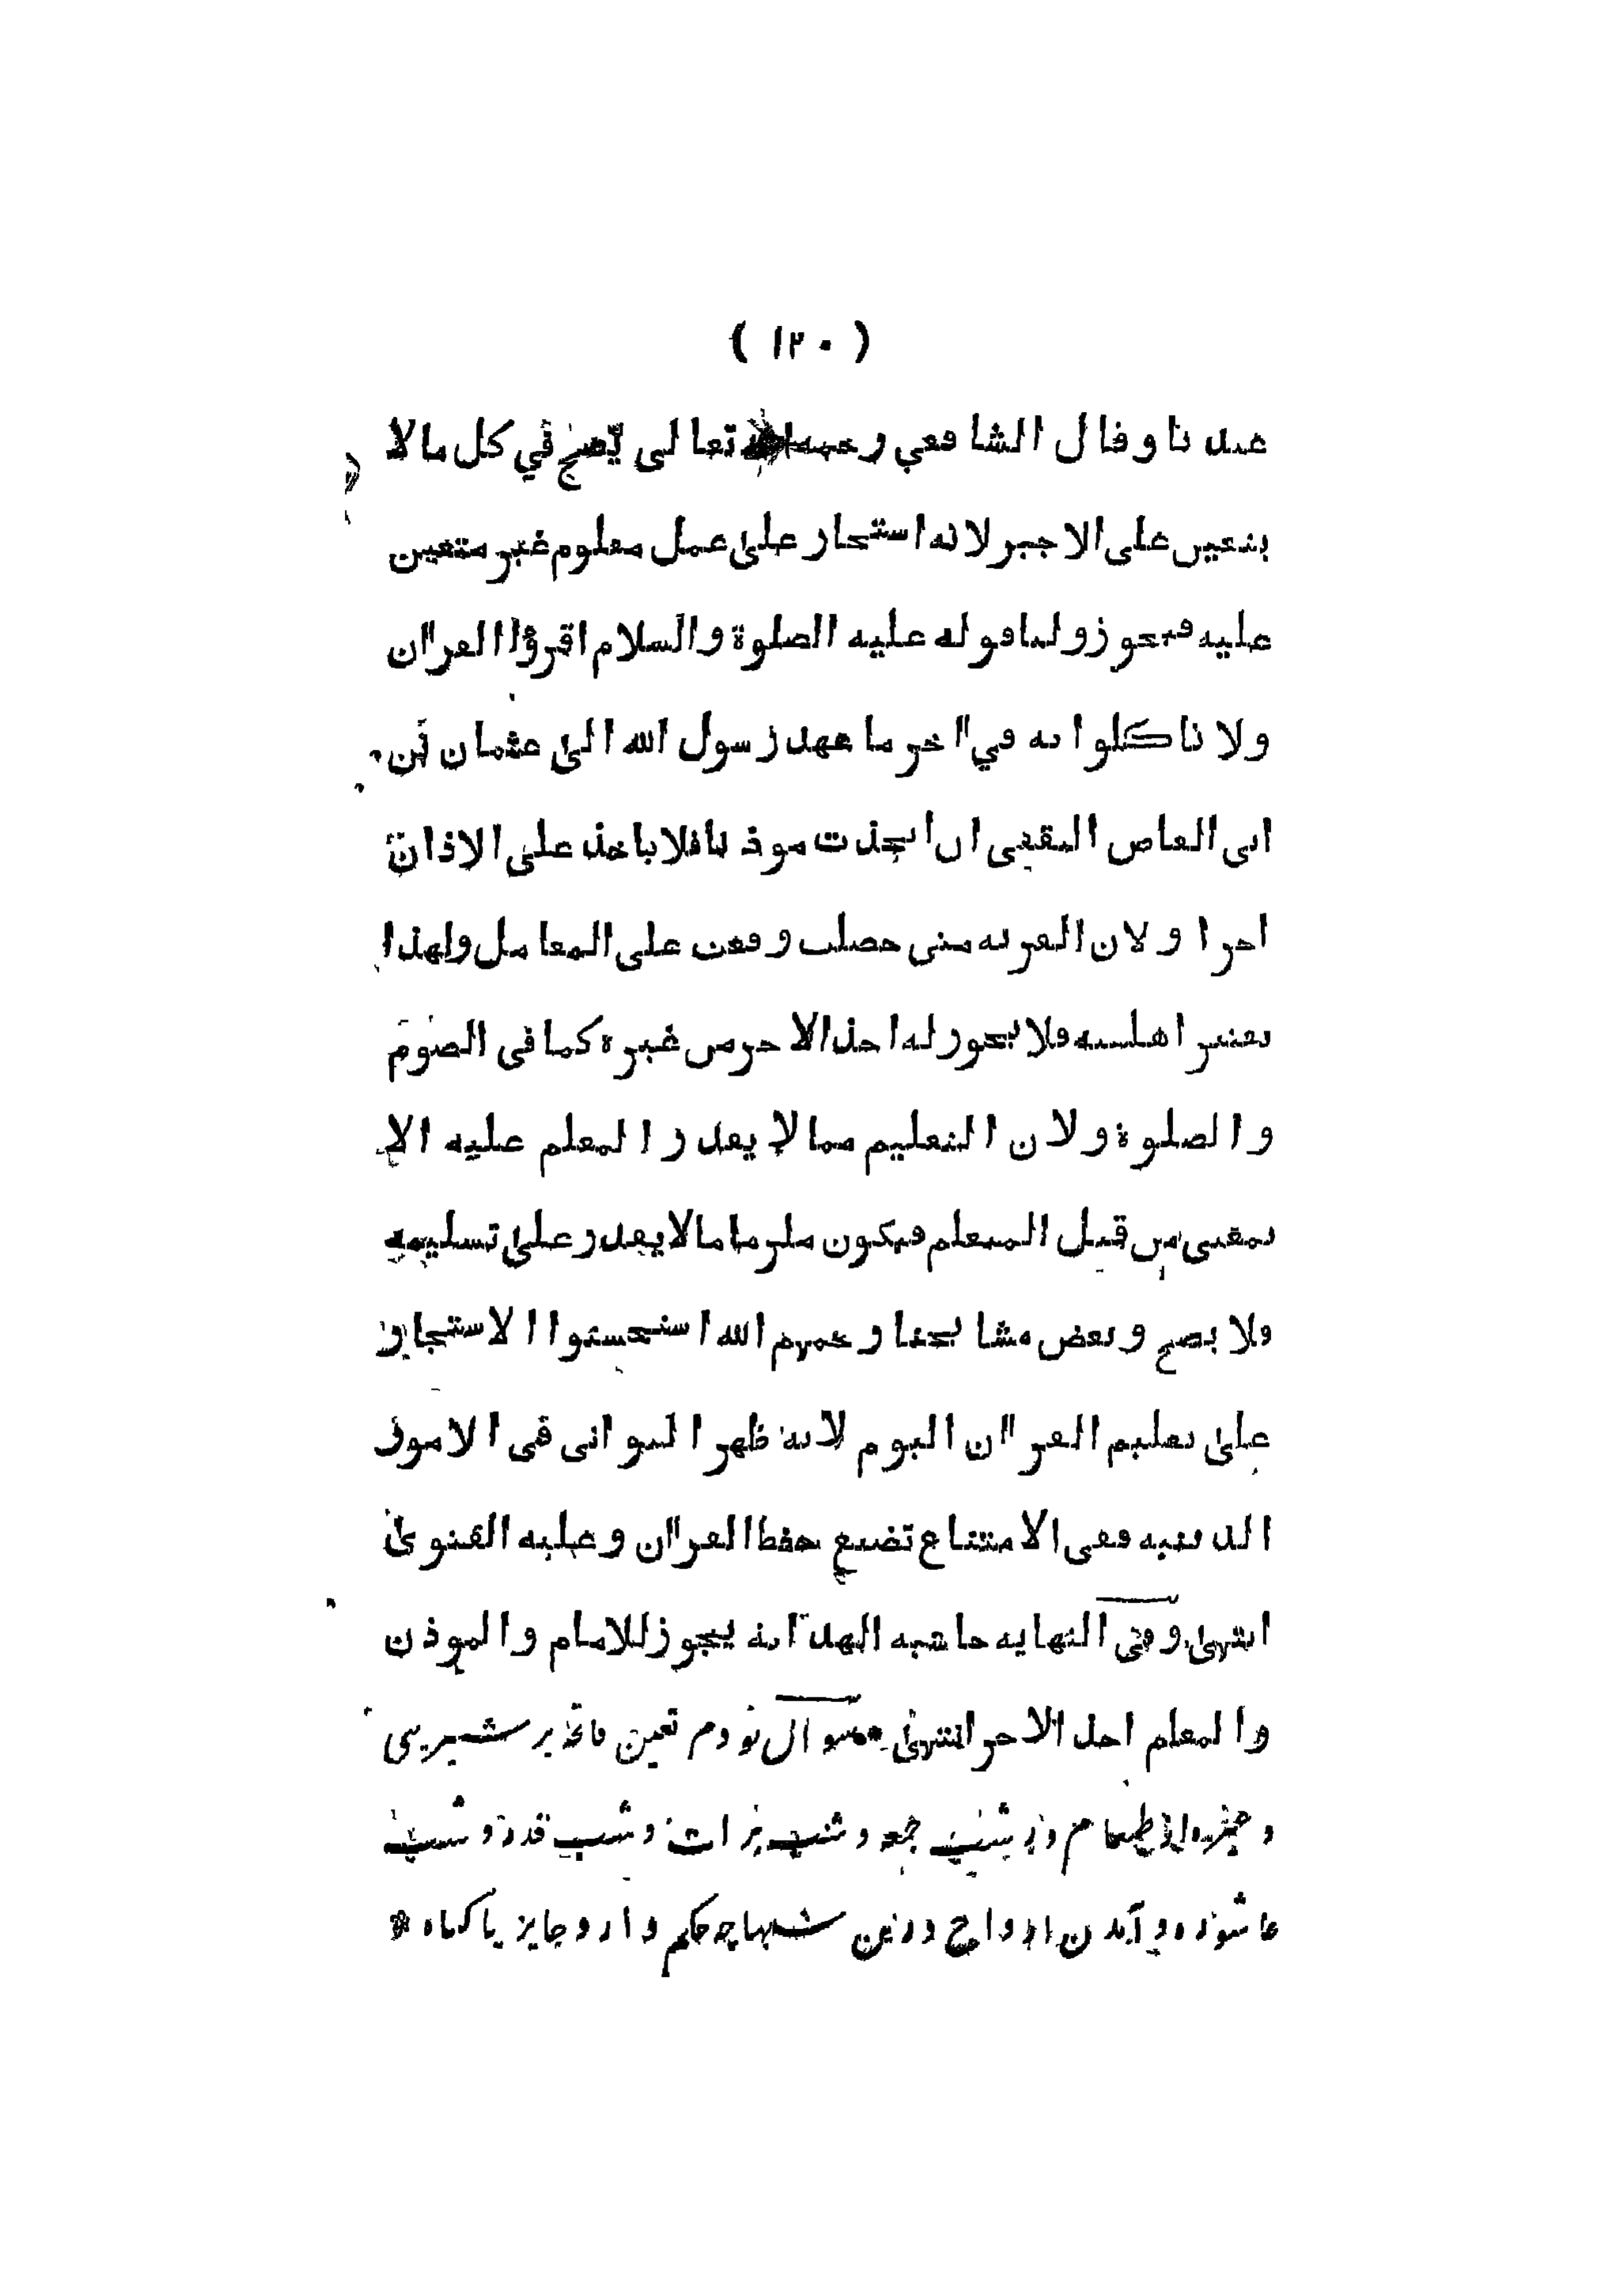 ( ١٢٠ )
عندنا وقال الشافعي رحمه الله تعالى يصح في كل مالا
يتعين على الاجير لانه استيجار على عمل معلوم غير متعين
عليه فيجوز ولنا قوله عليه الصلوة والسلام اقرؤا القرآن
ولا تاكلوا به وفي آخر ما عهد رسول الله الى عثمان بن
ابى العاص الثقفى ان اتخذت موذنا فلا ياخذ على الاذان
اجرا ولان القربة متى حصلت وقعت على العامل ولهذا
يعتبر اهليته فلا يجوز له اخذ الاجر من غيره كما فى الصوم
والصلوة ولان التعليم مما لا يقدر المعلم عليه الا
بمعنى من قبل المتعلم فيكون ملتزما مالا يقدر على تسليمه
فلا يصح وبعض مشايخنا رحمهم الله استحسنوا الاستيجار
على تعليم القرآن اليوم لانه ظهر التوانى فى الامور
الدينيه ففى الامتناع تضيع حفظ القرآن وعليه الفتوى
انتهى وفى النهايه حاشيه الهدايه يجوز للامام والموذن
والمعلم اخذ الاجر انتهى * سوال نودم تعين فاتحه بر شيرينى
و طعام در شب جمعه و شب برات و شب قدر و شب
عاشوره و آمدن ارواح درين شبها چه حكم دارد جايز يا گناه *